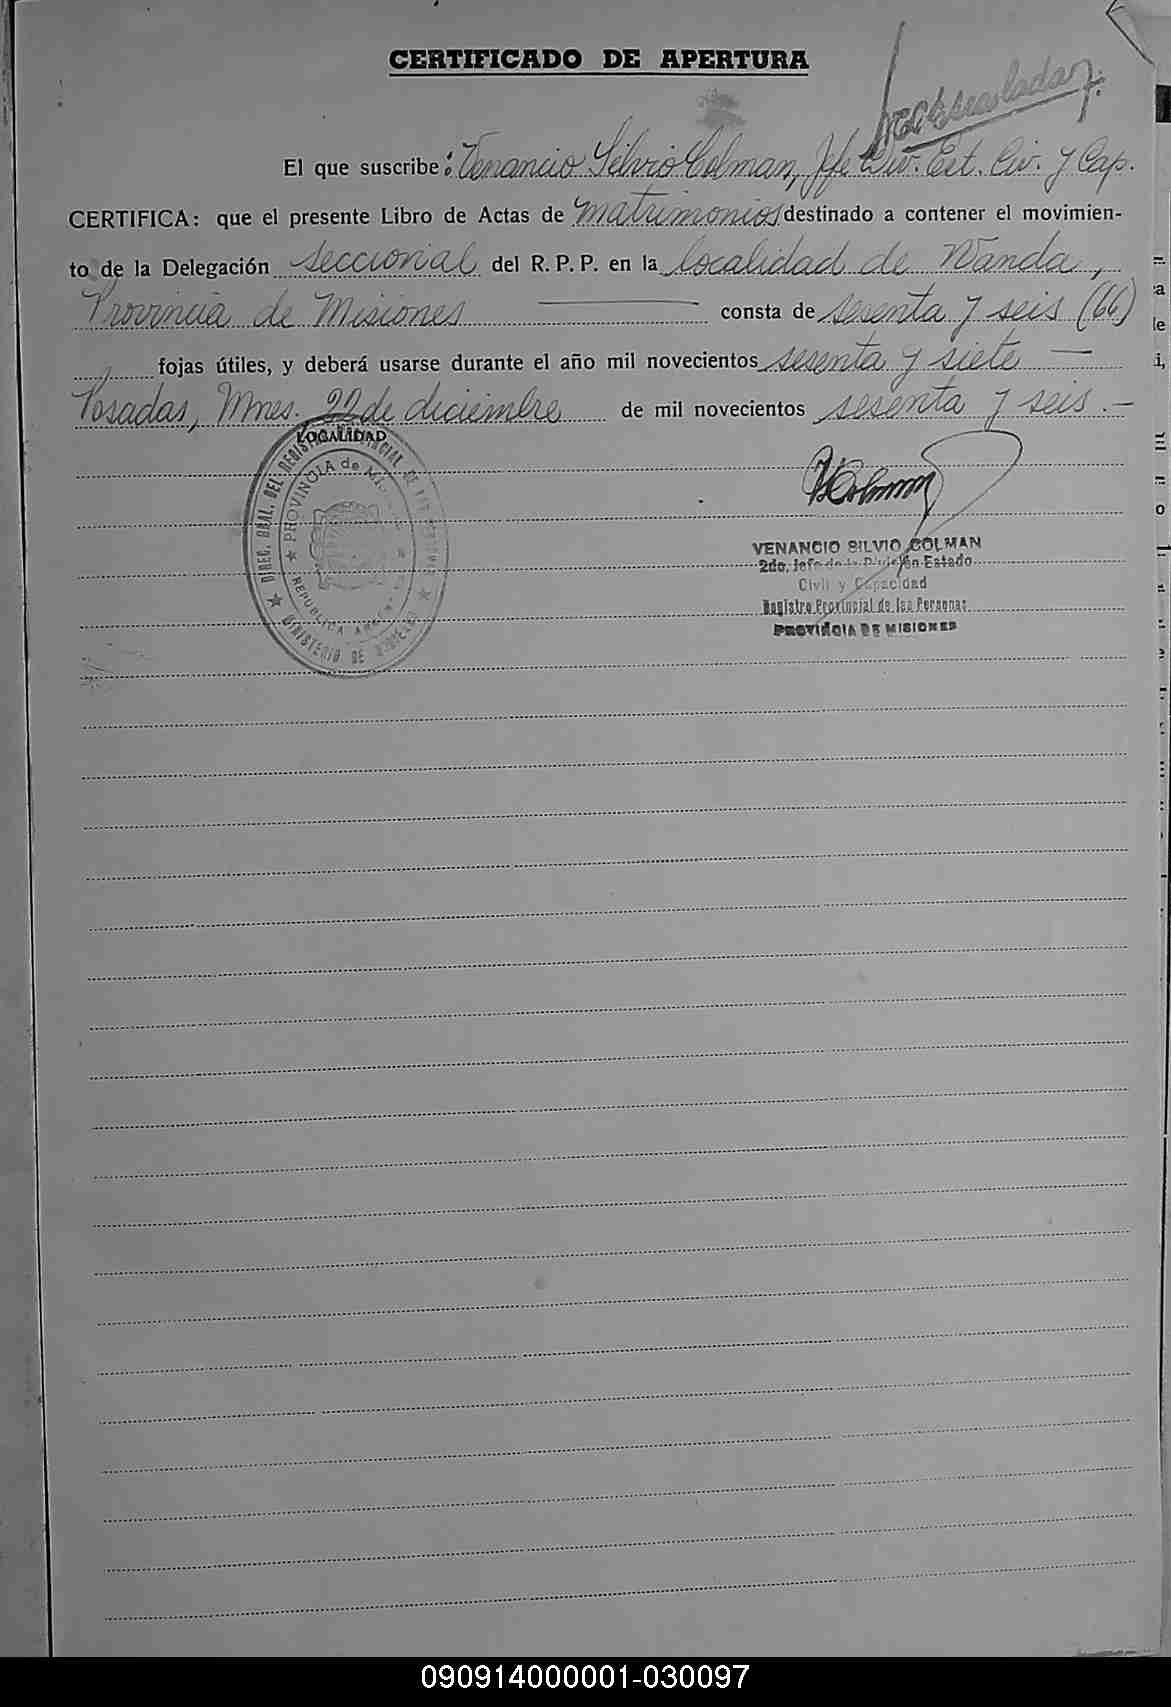 CERTIFICADO DE APERTURA
El que suscribe: Venancio Silvio Colman, Jefe Div. Est. Civ. y Cap.
CERTIFICA: que el presente Libro de Actas de matrimonios destinado a contener el movimien-
to de la Delegación seccional del R. P. P. en la localidad de Wanda,
Provincia de Misiones consta de sesenta y seis (66)
fojas útiles, y deberá usarse durante el año mil novecientos sesenta y siete —
Posadas, Mnes. 22 de diciembre de mil novecientos sesenta y seis.—
LOCALIDAD
DIREC. GRAL. DEL REGISTRO PROVINCIAL DE LAS PERSONAS
★ MINISTERIO DE GOBIERNO ★
★ PROVINCIA de MISIONES ★
REPUBLICA ARGENTINA
VColman
VENANCIO SILVIO COLMAN
2do. Jefe de la División Estado
Civil y Capacidad
Registro Provincial de las Personas
PROVINCIA DE MISIONES
090914000001-030097